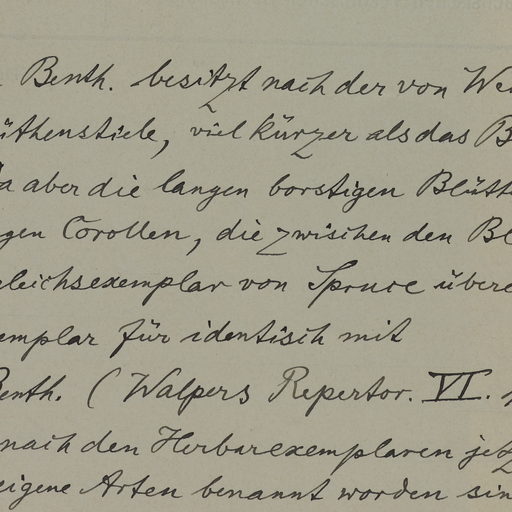 Benth. besitzt nach der von We
üthenstiele, viel kürzer als das B
da aber die langen borstigen Blüt
gen Corollen, die zwischen den Bl
leichsexemplar von Spruce über
emplar für identisch mit
Benth. (Walpers Repertor. VI.
nach den Herbarexemplaren jetz
eigene Arten benannt worden sin